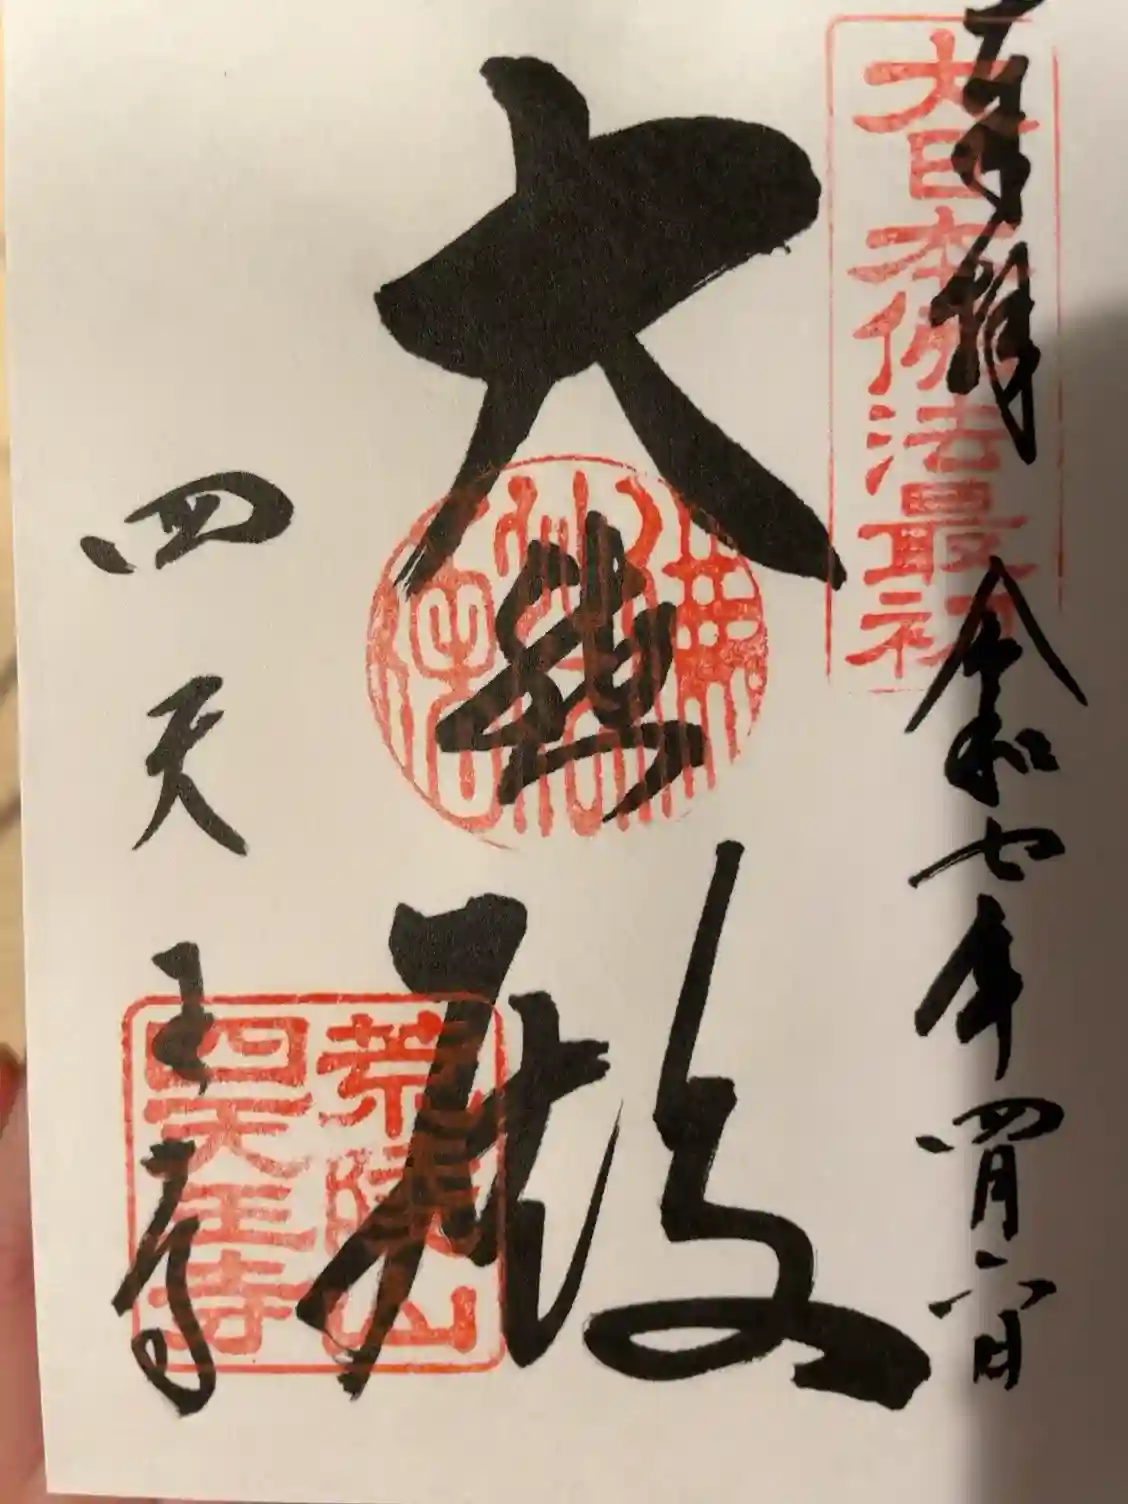 奉拝
令和七年四月六日
大日本佛法最初
大悲殿
四天王寺
荒陵山
四天王寺